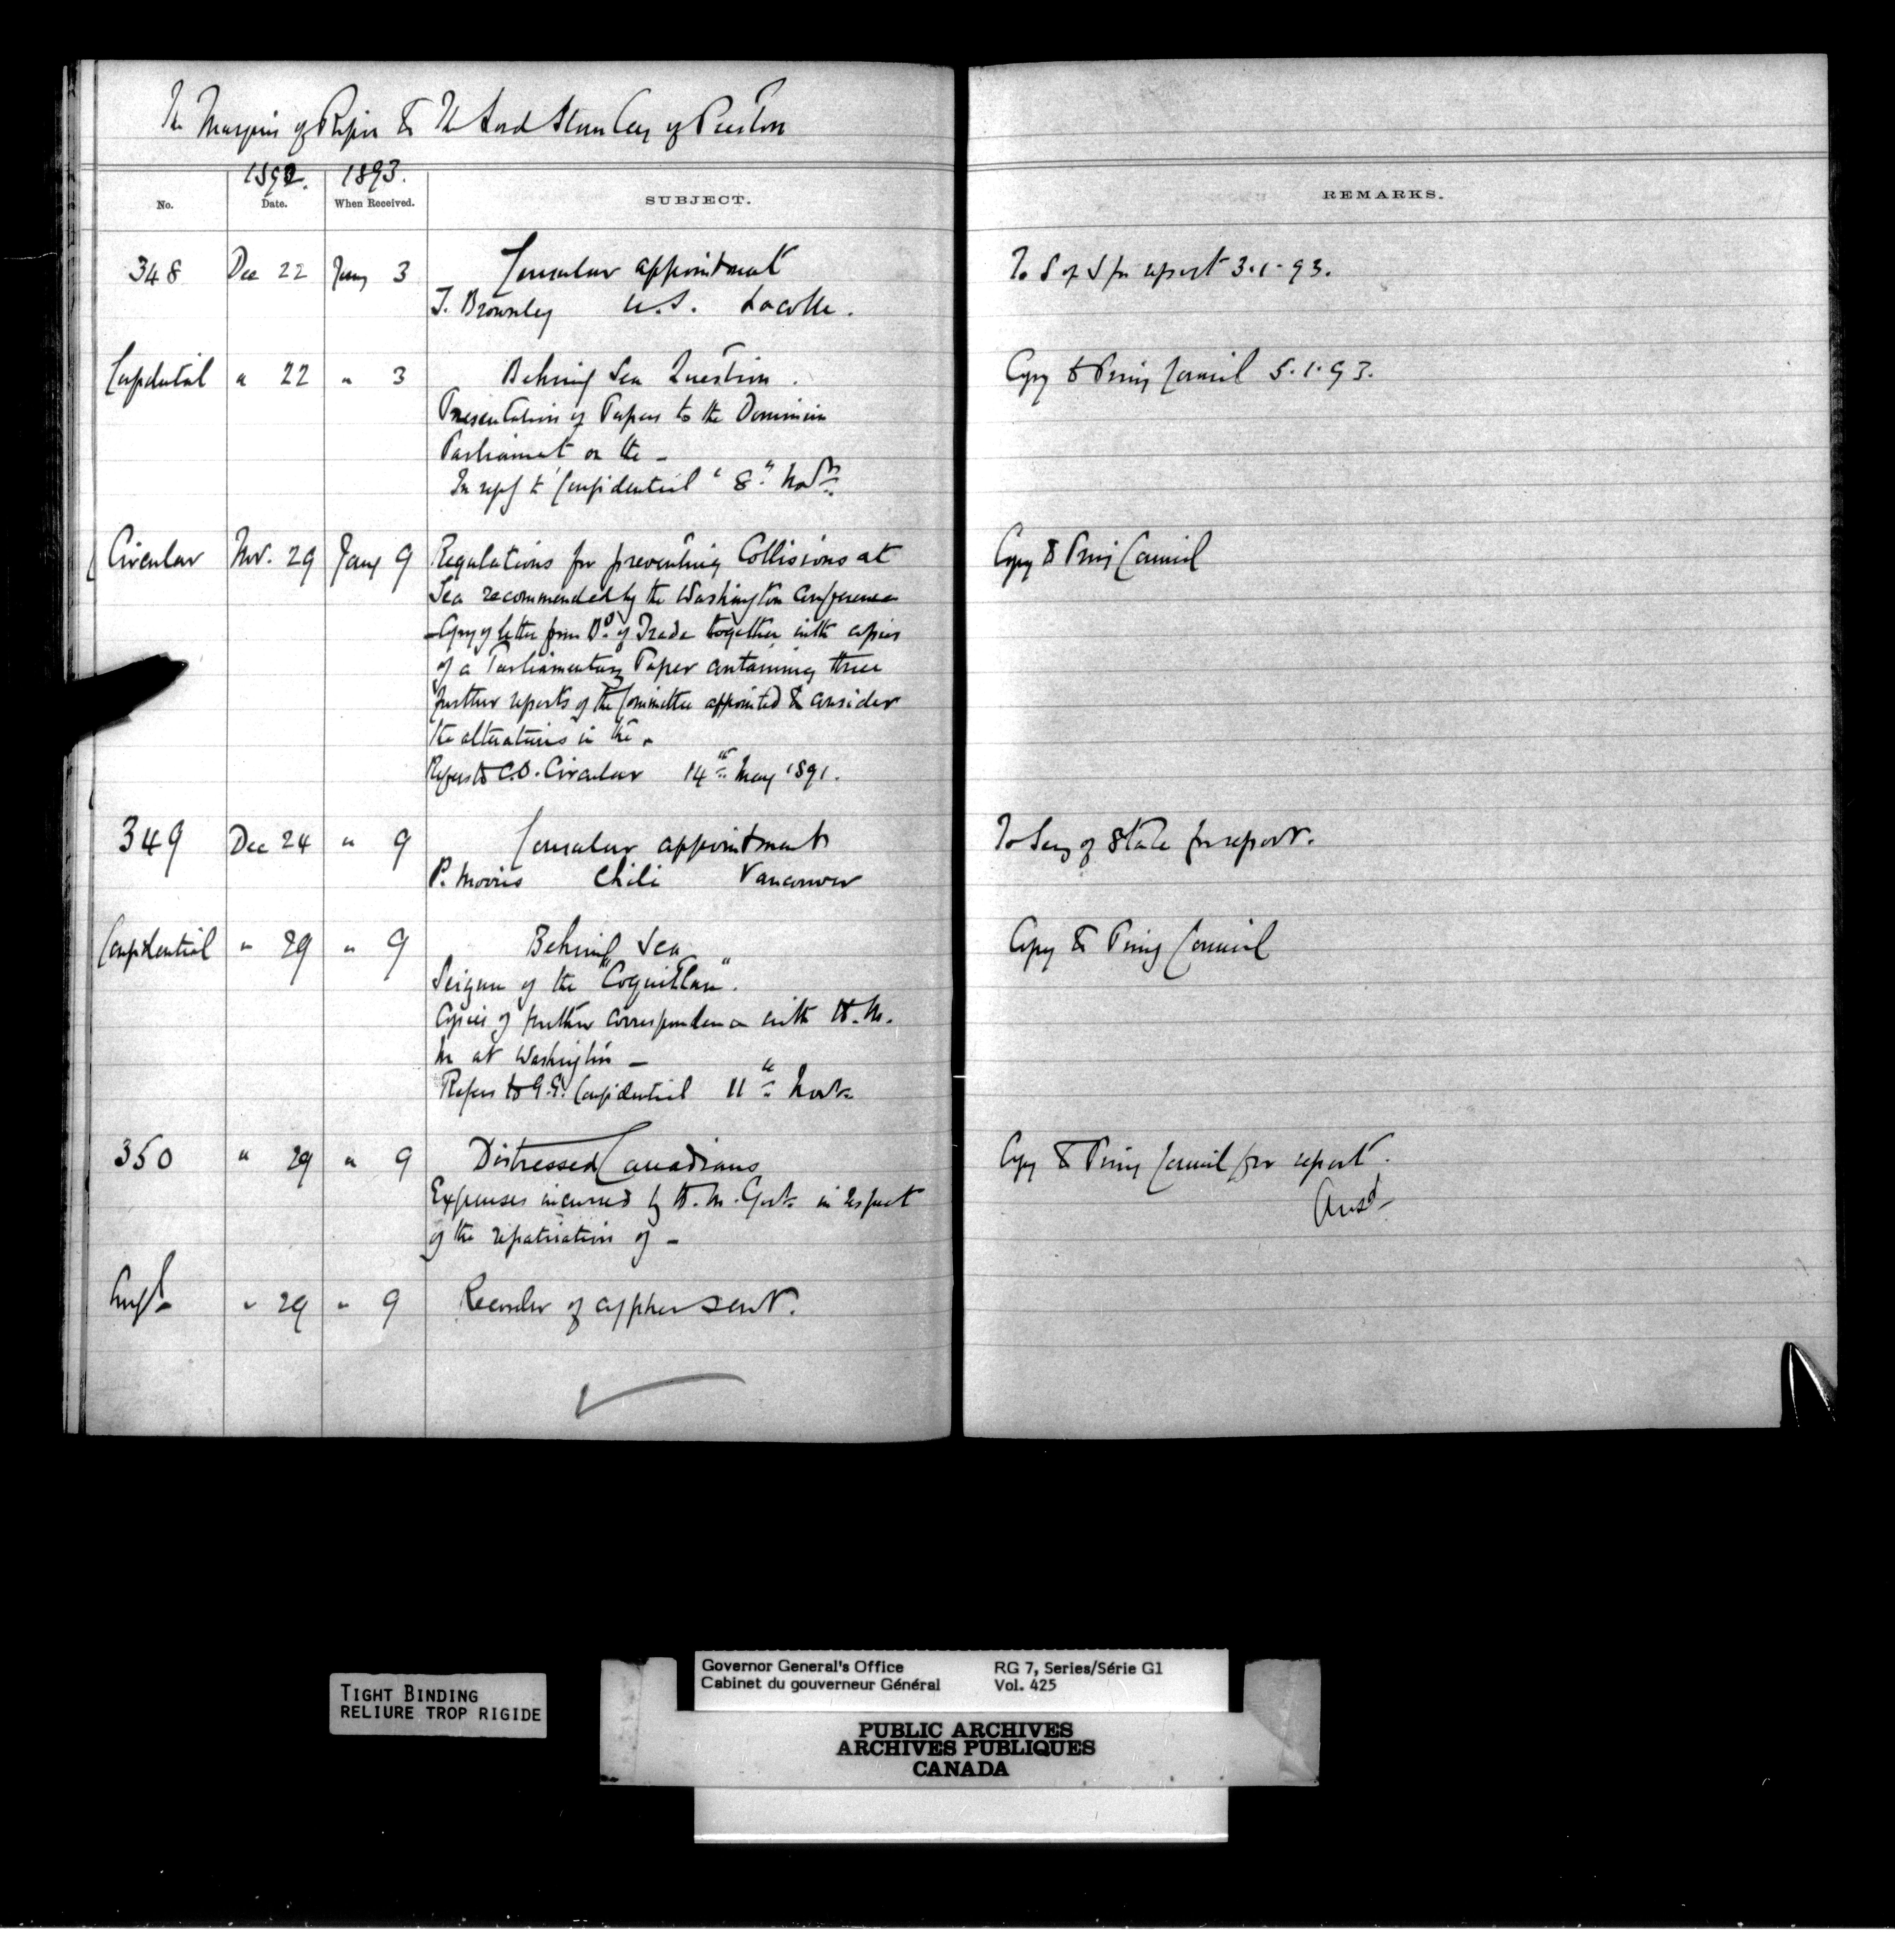 The Marquis of Ripon to The Lord Stanley of Preston
1892. 1893.
No. Date. When Received. SUBJECT. REMARKS.
348 Dec 22 Jany 3 Consular appointment To S of S for report 3.1.93.
J. Brownley U.S. Lacolle.
Confidential " 22 " 3 Behring Sea Question. Copy to Privy Council 5.1.93.
Presentation of Papers to the Dominion
Parliament on the -
In reply to Confidential " 8th Novr
Circular Nov. 29 Jany 9 Regulations for preventing Collisions at Copy to Privy Council
Sea recommended by the Washington Conference
- Copy of letter from Bd of Trade together with copies
of a Parliamentary Paper containing three
further reports of the Committee appointed to consider
the alterations in the -
Refers to C.O. Circular 14th May 1891.
349 Dec 24 " 9 Consular appointment To Secy of State for report.
P. Morris Chili Vancouver
Confidential " 29 " 9 Behring Sea Copy to Privy Council
Seizure of the "Coquitlan".
Copies of further correspondence with H.M.
M at Washington -
Refers to G.G's Confidential 11th Novr
350 " 29 " 9 Distressed Canadians Copy to Privy Council for report.
Expenses incurred by H.M. Govt. in respect Ansd
of the repatriation of -
" 29 " 9 Recorder of cypher sent.
TIGHT BINDING
RELIURE TROP RIGIDE
Governor General's Office RG 7, Series/Série G1
Cabinet du gouverneur Général Vol. 425
PUBLIC ARCHIVES
ARCHIVES PUBLIQUES
CANADA